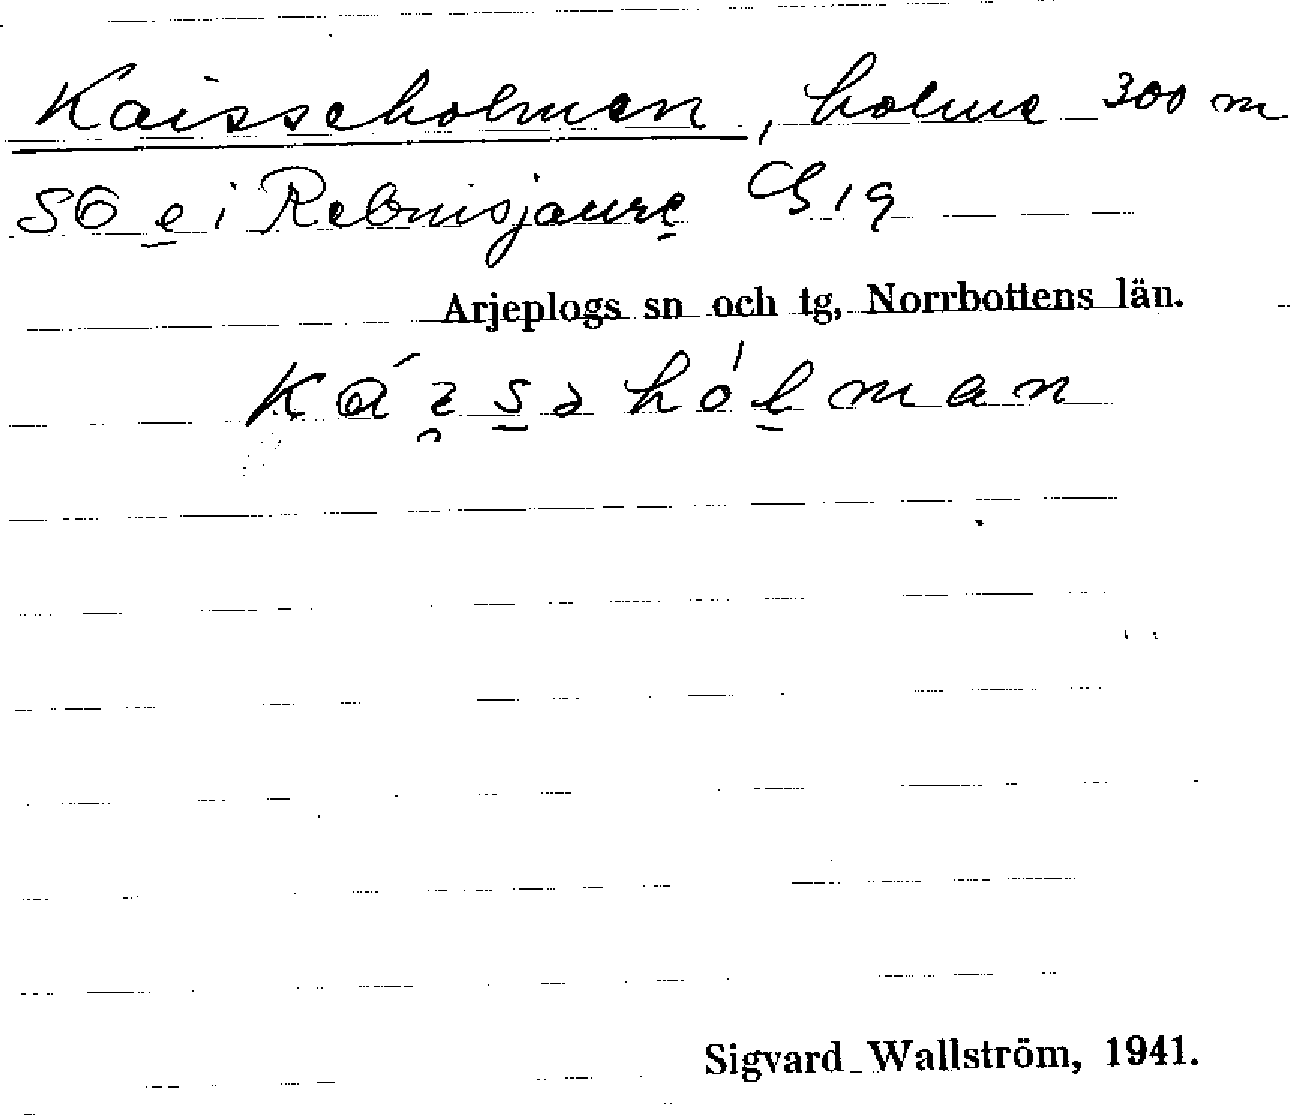 Kaisseholmen, holme 300 m
SO e i Rebnisjaure C8 1 q
Arjeplogs sn och tg, Norrbottens län.
Sigvard Wallström, 1941.